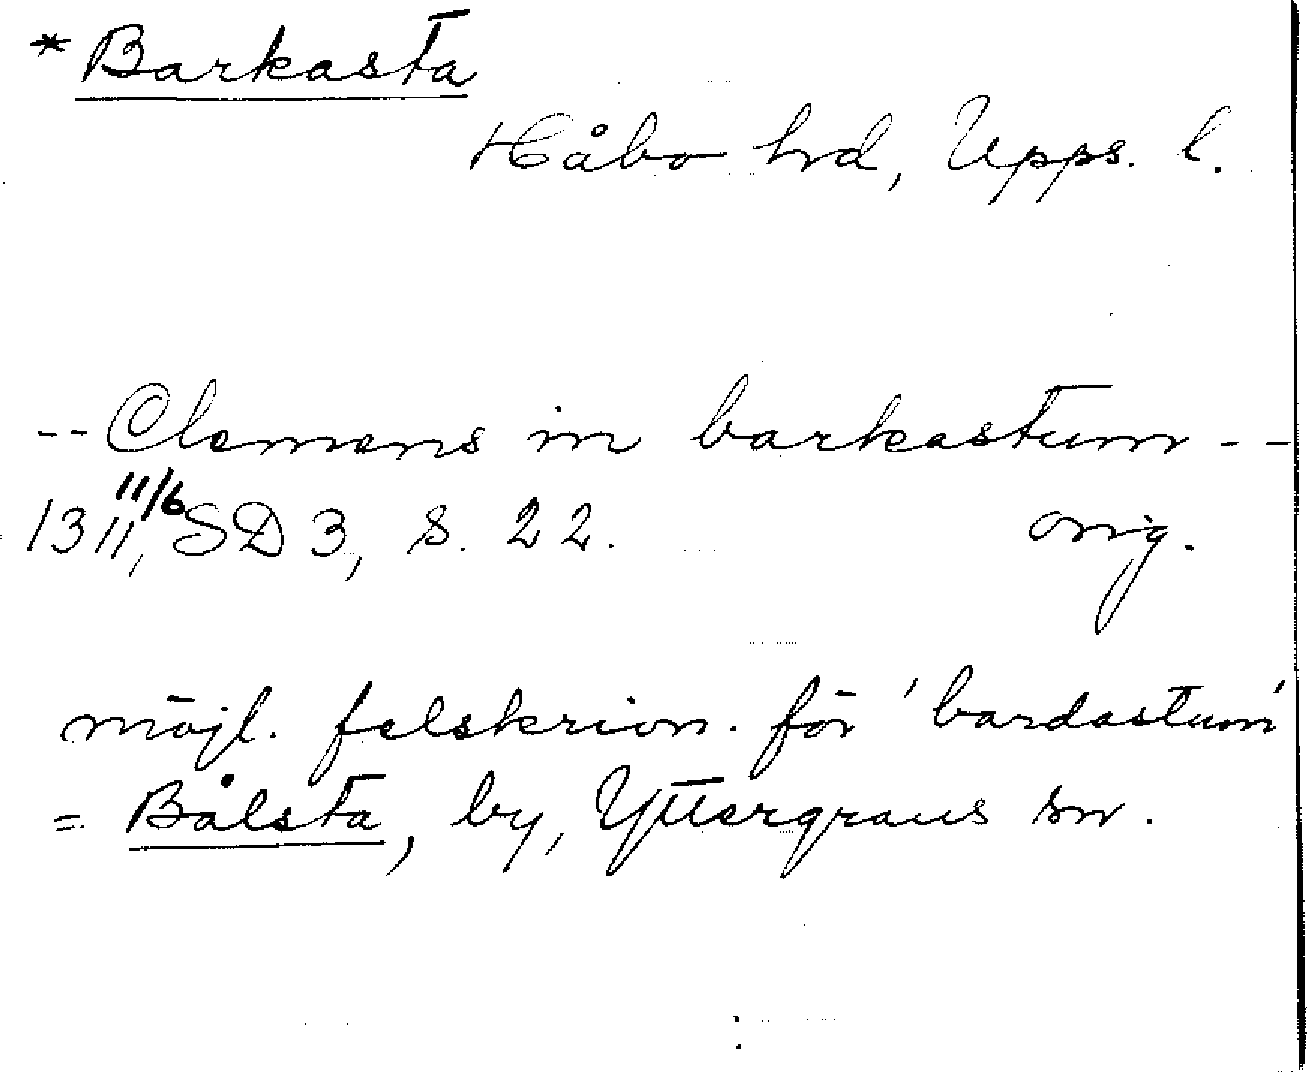 * Barkasta
Håbo hrd, Upps. l.
-- Clemens in barkastum --
13 11/6 11, SD 3, s. 22. orig.
möjl. felskrivn. för 'bardastum'
= Bålsta, by, Yttergrans sn.